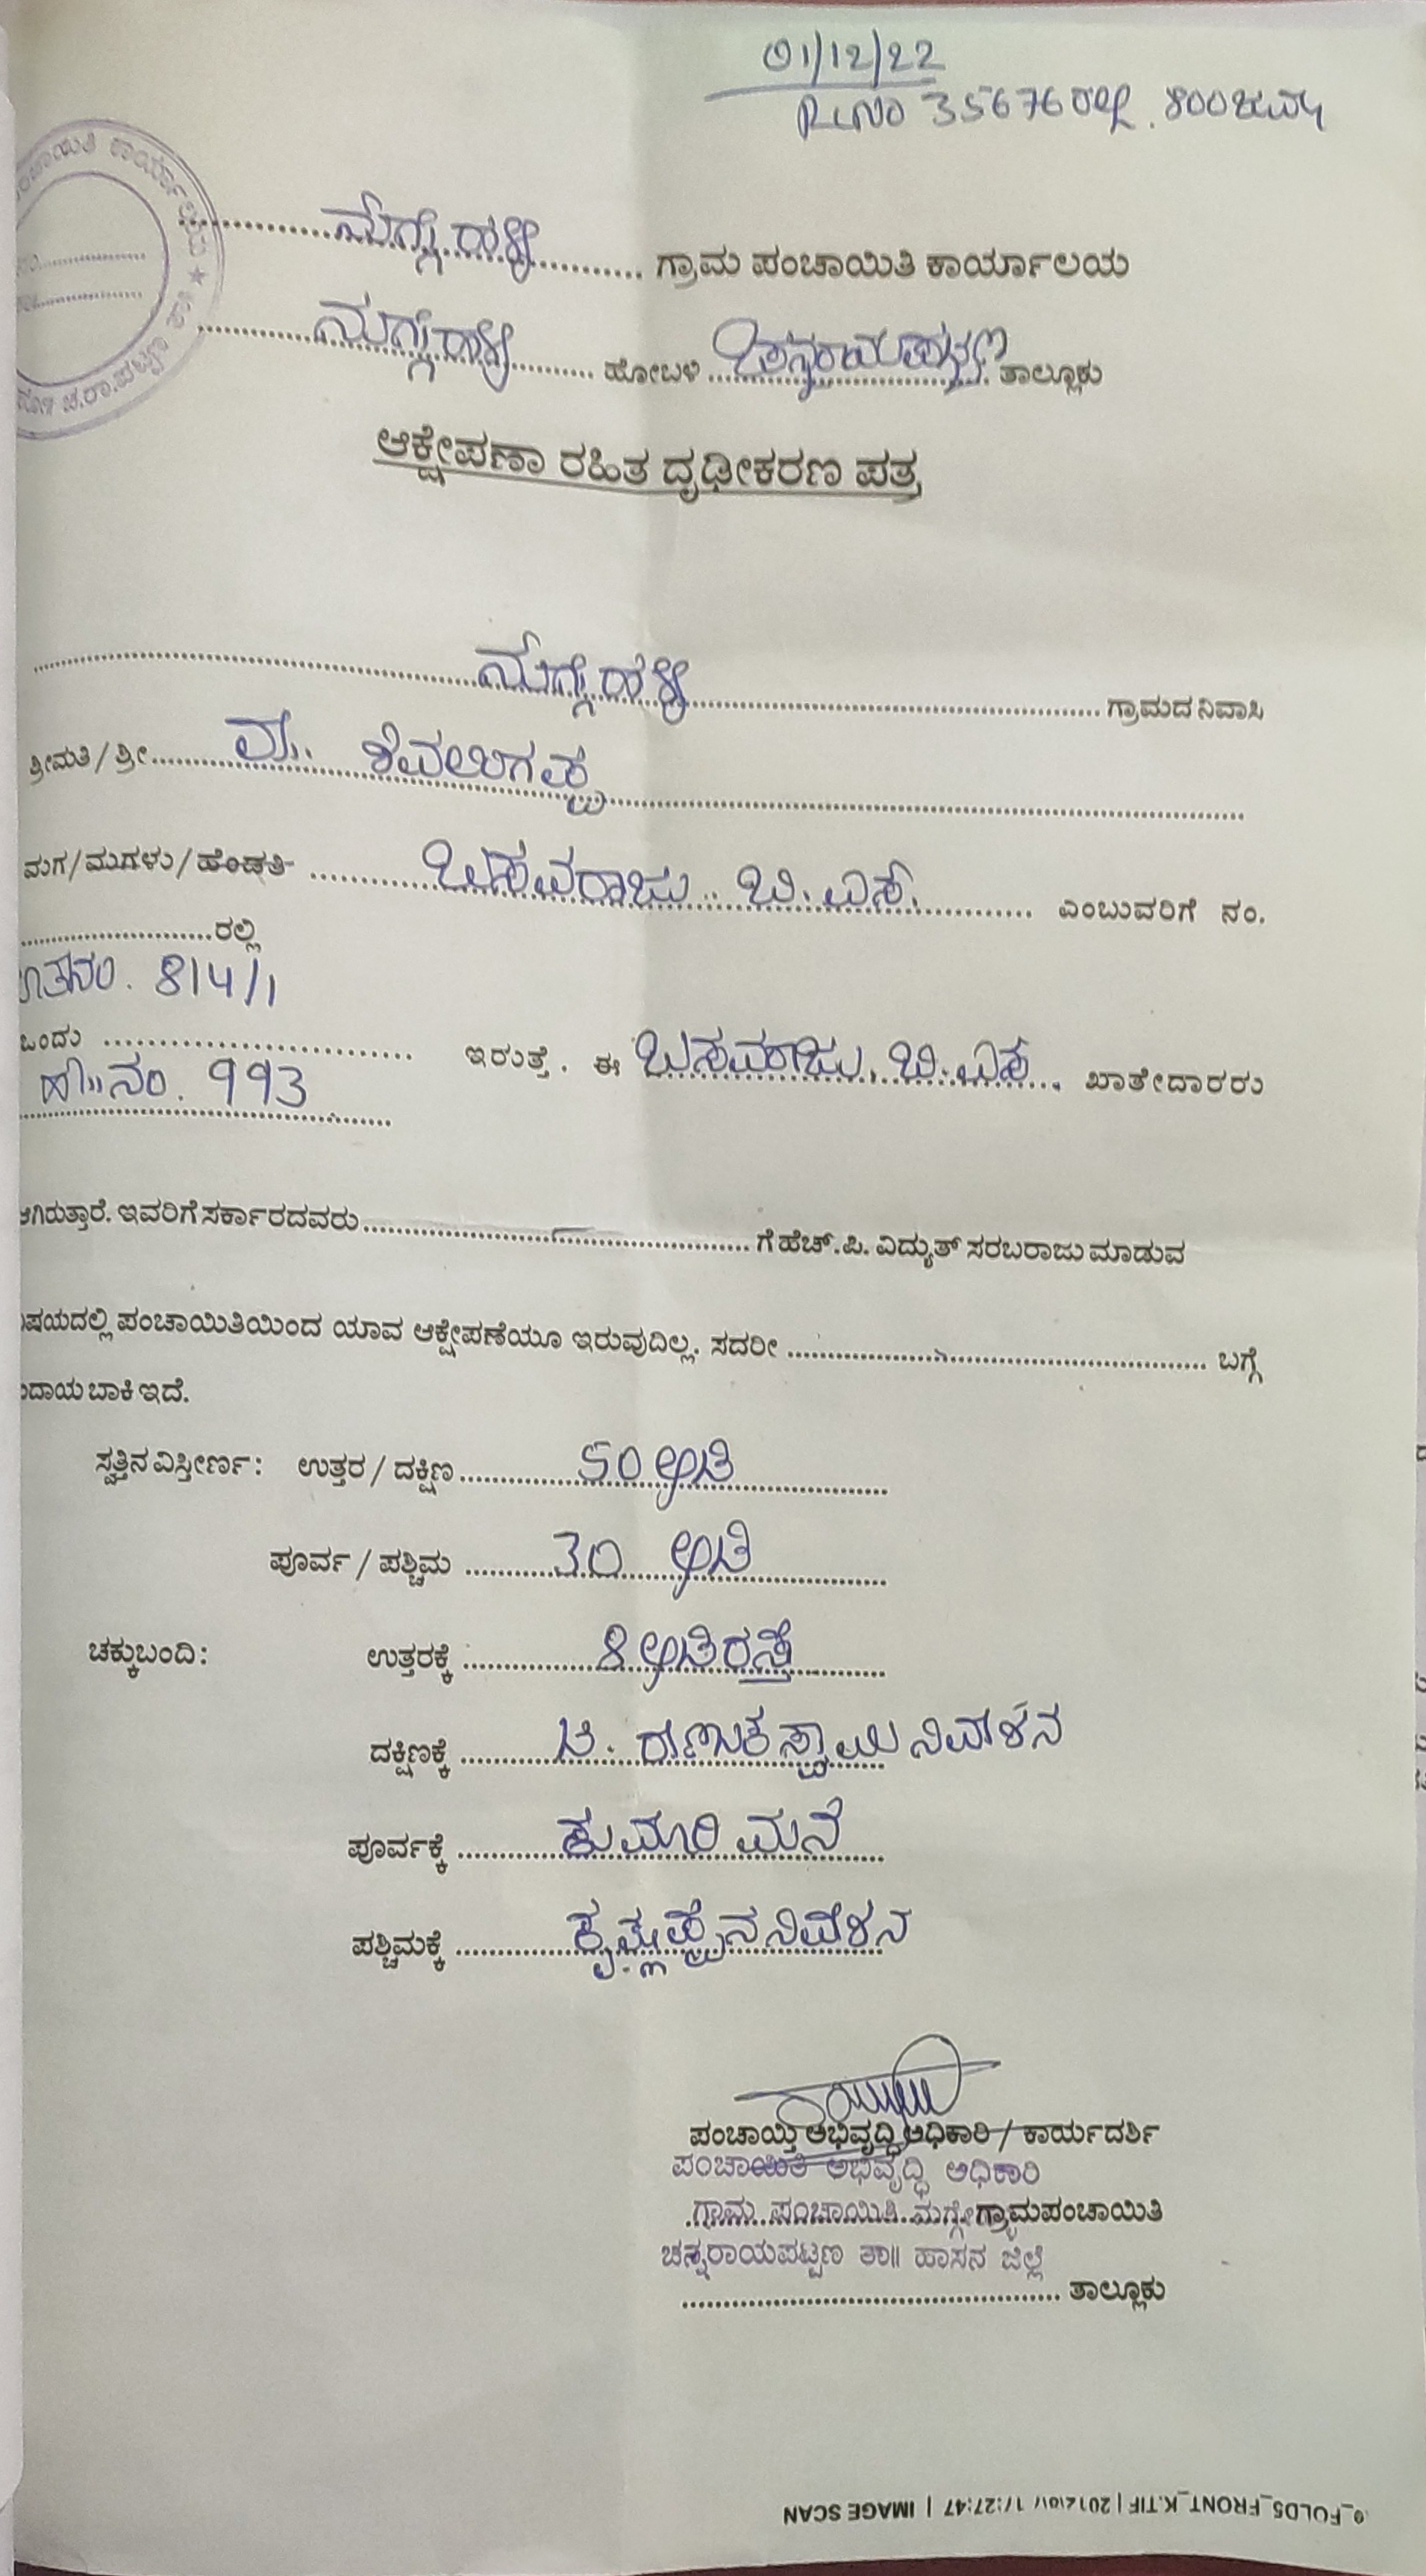 01/12/22
R.L.NO 35676 ರಲ್ಲಿ. 800 ಜಮ
ಕಾರ್ಯಾಲಯ ★
ಚ.ರಾ.ಪಟ್ಟಣ
ನುಗ್ಗೇಹಳ್ಳಿ ಗ್ರಾಮ ಪಂಚಾಯಿತಿ ಕಾರ್ಯಾಲಯ
ನುಗ್ಗೇಹಳ್ಳಿ ಹೋಬಳಿ ಚನ್ನರಾಯಪಟ್ಟಣ ತಾಲ್ಲೂಕು
ಆಕ್ಷೇಪಣಾ ರಹಿತ ದೃಢೀಕರಣ ಪತ್ರ
ನುಗ್ಗೇಹಳ್ಳಿ ಗ್ರಾಮದ ನಿವಾಸಿ
ಶ್ರೀಮತಿ / ಶ್ರೀ
ಮಗ / ಮಗಳು / ಹೆಂಡತಿ ಬಸವರಾಜು . ಬಿ. ಎಸ್. ಎಂಬುವರಿಗೆ ನಂ.
ರಲ್ಲಿ
814/1
ಒಂದು ಇರುತ್ತೆ. ಈ ಬಸವರಾಜು. ಬಿ. ಎಸ್. ಖಾತೇದಾರರು
ನಂ. 993
ಆಗಿರುತ್ತಾರೆ. ಇವರಿಗೆ ಸರ್ಕಾರದವರು ಗೆ ಹೆಚ್.ಪಿ. ವಿದ್ಯುತ್ ಸರಬರಾಜು ಮಾಡುವ
ಷಯದಲ್ಲಿ ಪಂಚಾಯಿತಿಯಿಂದ ಯಾವ ಆಕ್ಷೇಪಣೆಯೂ ಇರುವುದಿಲ್ಲ. ಸದರೀ ಬಗ್ಗೆ
ದಾಯ ಬಾಕಿ ಇದೆ.
ಸ್ವತ್ತಿನ ವಿಸ್ತೀರ್ಣ : ಉತ್ತರ / ದಕ್ಷಿಣ 50 ಅಡಿ
ಪೂರ್ವ / ಪಶ್ಚಿಮ 30 ಅಡಿ
ಚಕ್ಕುಬಂದಿ : ಉತ್ತರಕ್ಕೆ 8 ಅಡಿ ರಸ್ತೆ
ದಕ್ಷಿಣಕ್ಕೆ ನಿವೇಶನ
ಪೂರ್ವಕ್ಕೆ ಕುಮಾರಿ ಮನೆ
ಪಶ್ಚಿಮಕ್ಕೆ ಕೃಷ್ಣಪ್ಪನ ನಿವೇಶನ
ಪಂಚಾಯ್ತಿ ಅಭಿವೃದ್ಧಿ ಅಧಿಕಾರಿ / ಕಾರ್ಯದರ್ಶಿ
ಪಂಚಾಯಿತಿ ಅಭಿವೃದ್ಧಿ ಅಧಿಕಾರಿ
ಗ್ರಾಮ ಪಂಚಾಯಿತಿ ಗ್ರಾಮಪಂಚಾಯಿತಿ
ಚನ್ನರಾಯಪಟ್ಟಣ ತಾ॥ ಹಾಸನ ಜಿಲ್ಲೆ
ತಾಲ್ಲೂಕು
_FOLD5_FRONT_K.TIF | 17:27:47 | IMAGE SCAN